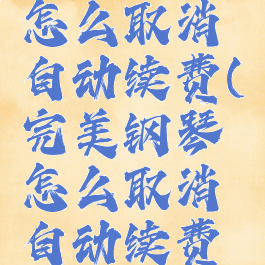 怎么取消
自动续费(
完美钢琴
怎么取消
自动续费